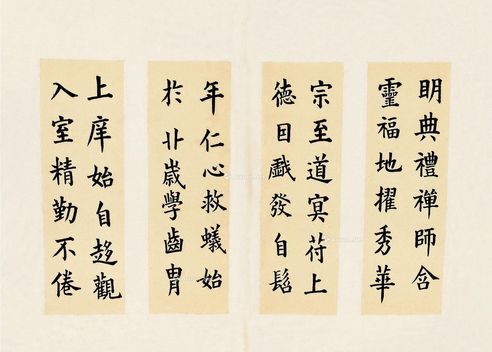 明典禮禪師含
靈福地擢秀華
宗至道冥苻上
德囙戯發自髫
年仁心救蟻始
於丱嵗學齒胄
上庠始自趍觀
入室精勤不倦